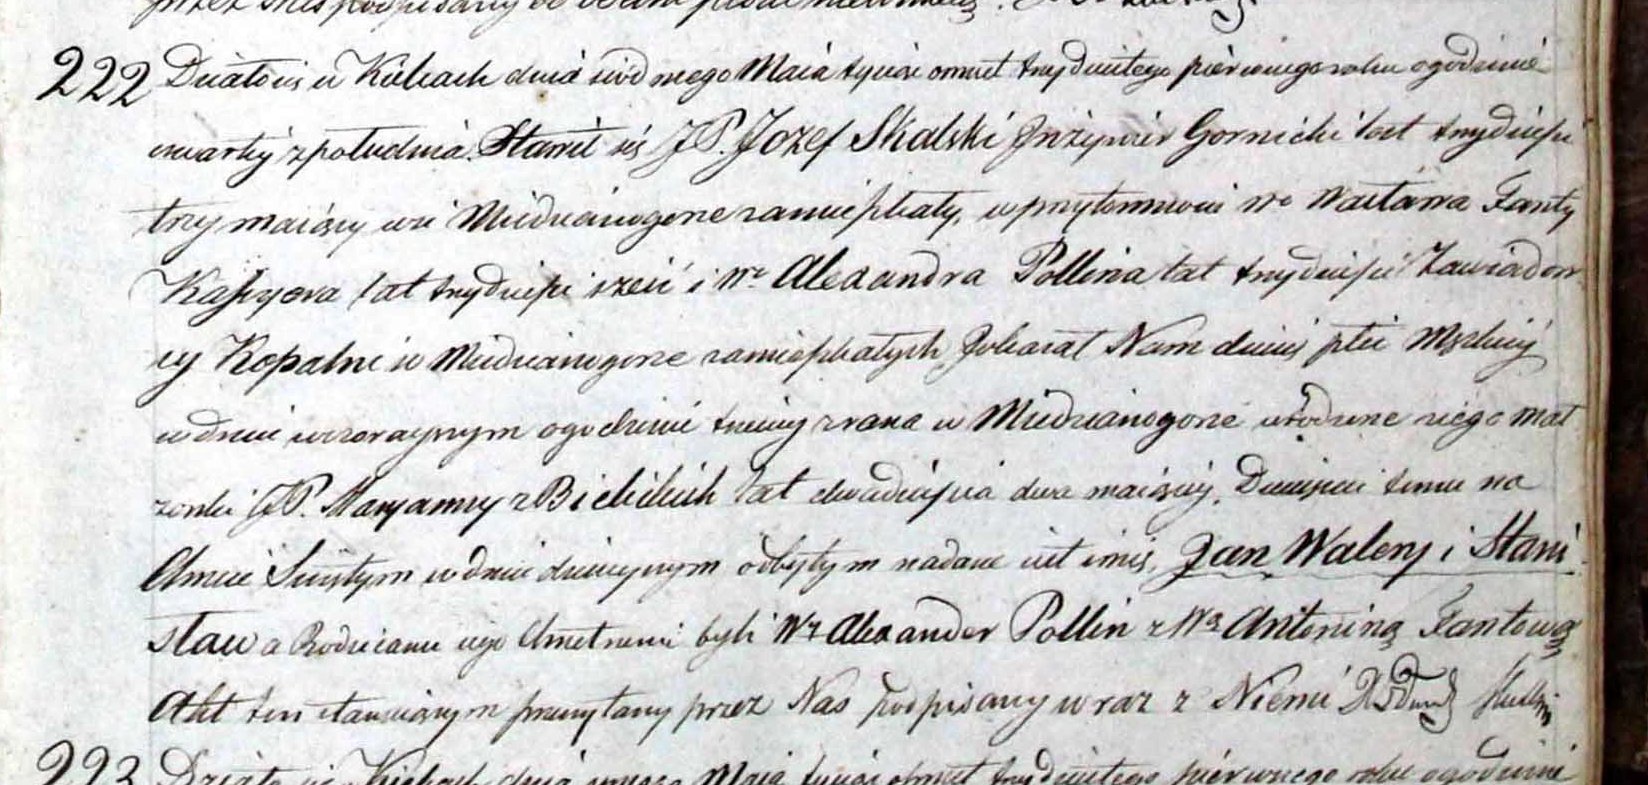 przez Nas podpisany
222 Działo się w Kielcach dnia siodmego Maia tysiac osmset trzydziestego pierwszego roku ogodzinie
czwartey zpołudnia. Stawił się JP. Jozef Skalski Jnżynier Gorniczi lat trzydzieści
trzy maiący wsi Miedzianogorze zamieszkały, wprzytomnosci Wo Wacława Fanty
Kassyera lat trzydzieści sześć i Wo Alexandra Pollina lat trzydzieści Zawiadow
cy Kopalni w Miedzianogorze zamieszkałych Jokazał Nam dziecię płci Męzkiey
wdniu wczorayszym ogodzinie trzeciey zrana w Miedzianogorze urodzone ziego Mał
zonki JP. Maryanny z Bielickich lat dwadzieścia dwa maiącey. Dziecięciu temu na
Chrzcie Swiętym wdniu dzisieyszym odbytym nadane iest imię, Jan Walery i Stani
sław a Rodzicami iego Chrzetnemi byli Wy Alexander Pollin z Wą Antoniną Fantową
Akt ten stawaiącym przeczytany przez Nas podpisany wraz z Niemi
223 Działo się Kielcach dnia Maia tysiac osmset trzydziestego pierwszego roku ogodzinie